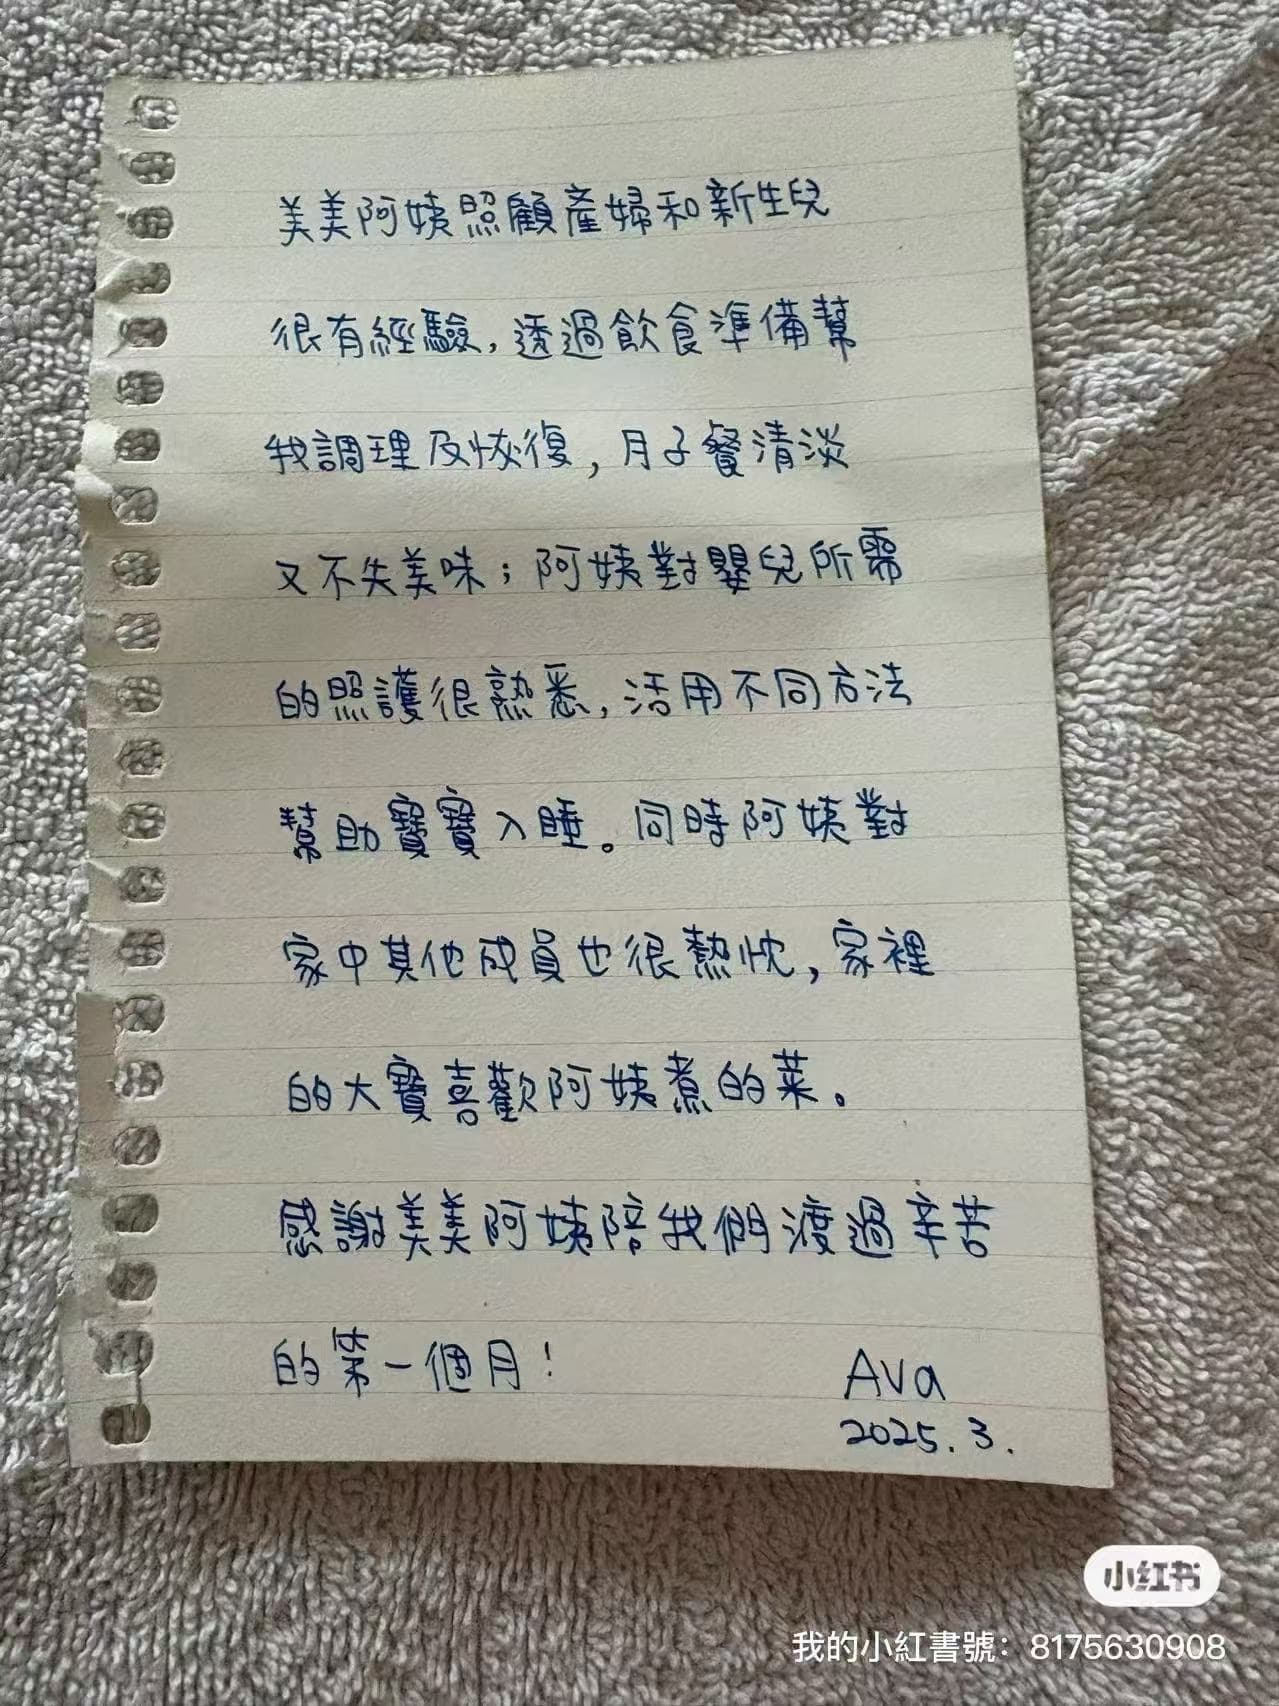 美美阿姨照顧產婦和新生兒
很有經驗，透過飲食準備幫
我調理及恢復，月子餐清淡
又不失美味；阿姨對嬰兒所需
的照護很熟悉，活用不同方法
幫助寶寶入睡。同時阿姨對
家中其他成員也很熱忱，家裡
的大寶喜歡阿姨煮的菜。
感謝美美阿姨陪我們渡過辛苦
的第一個月！
Ava
2025.3.
小红书
我的小紅書號：8175630908